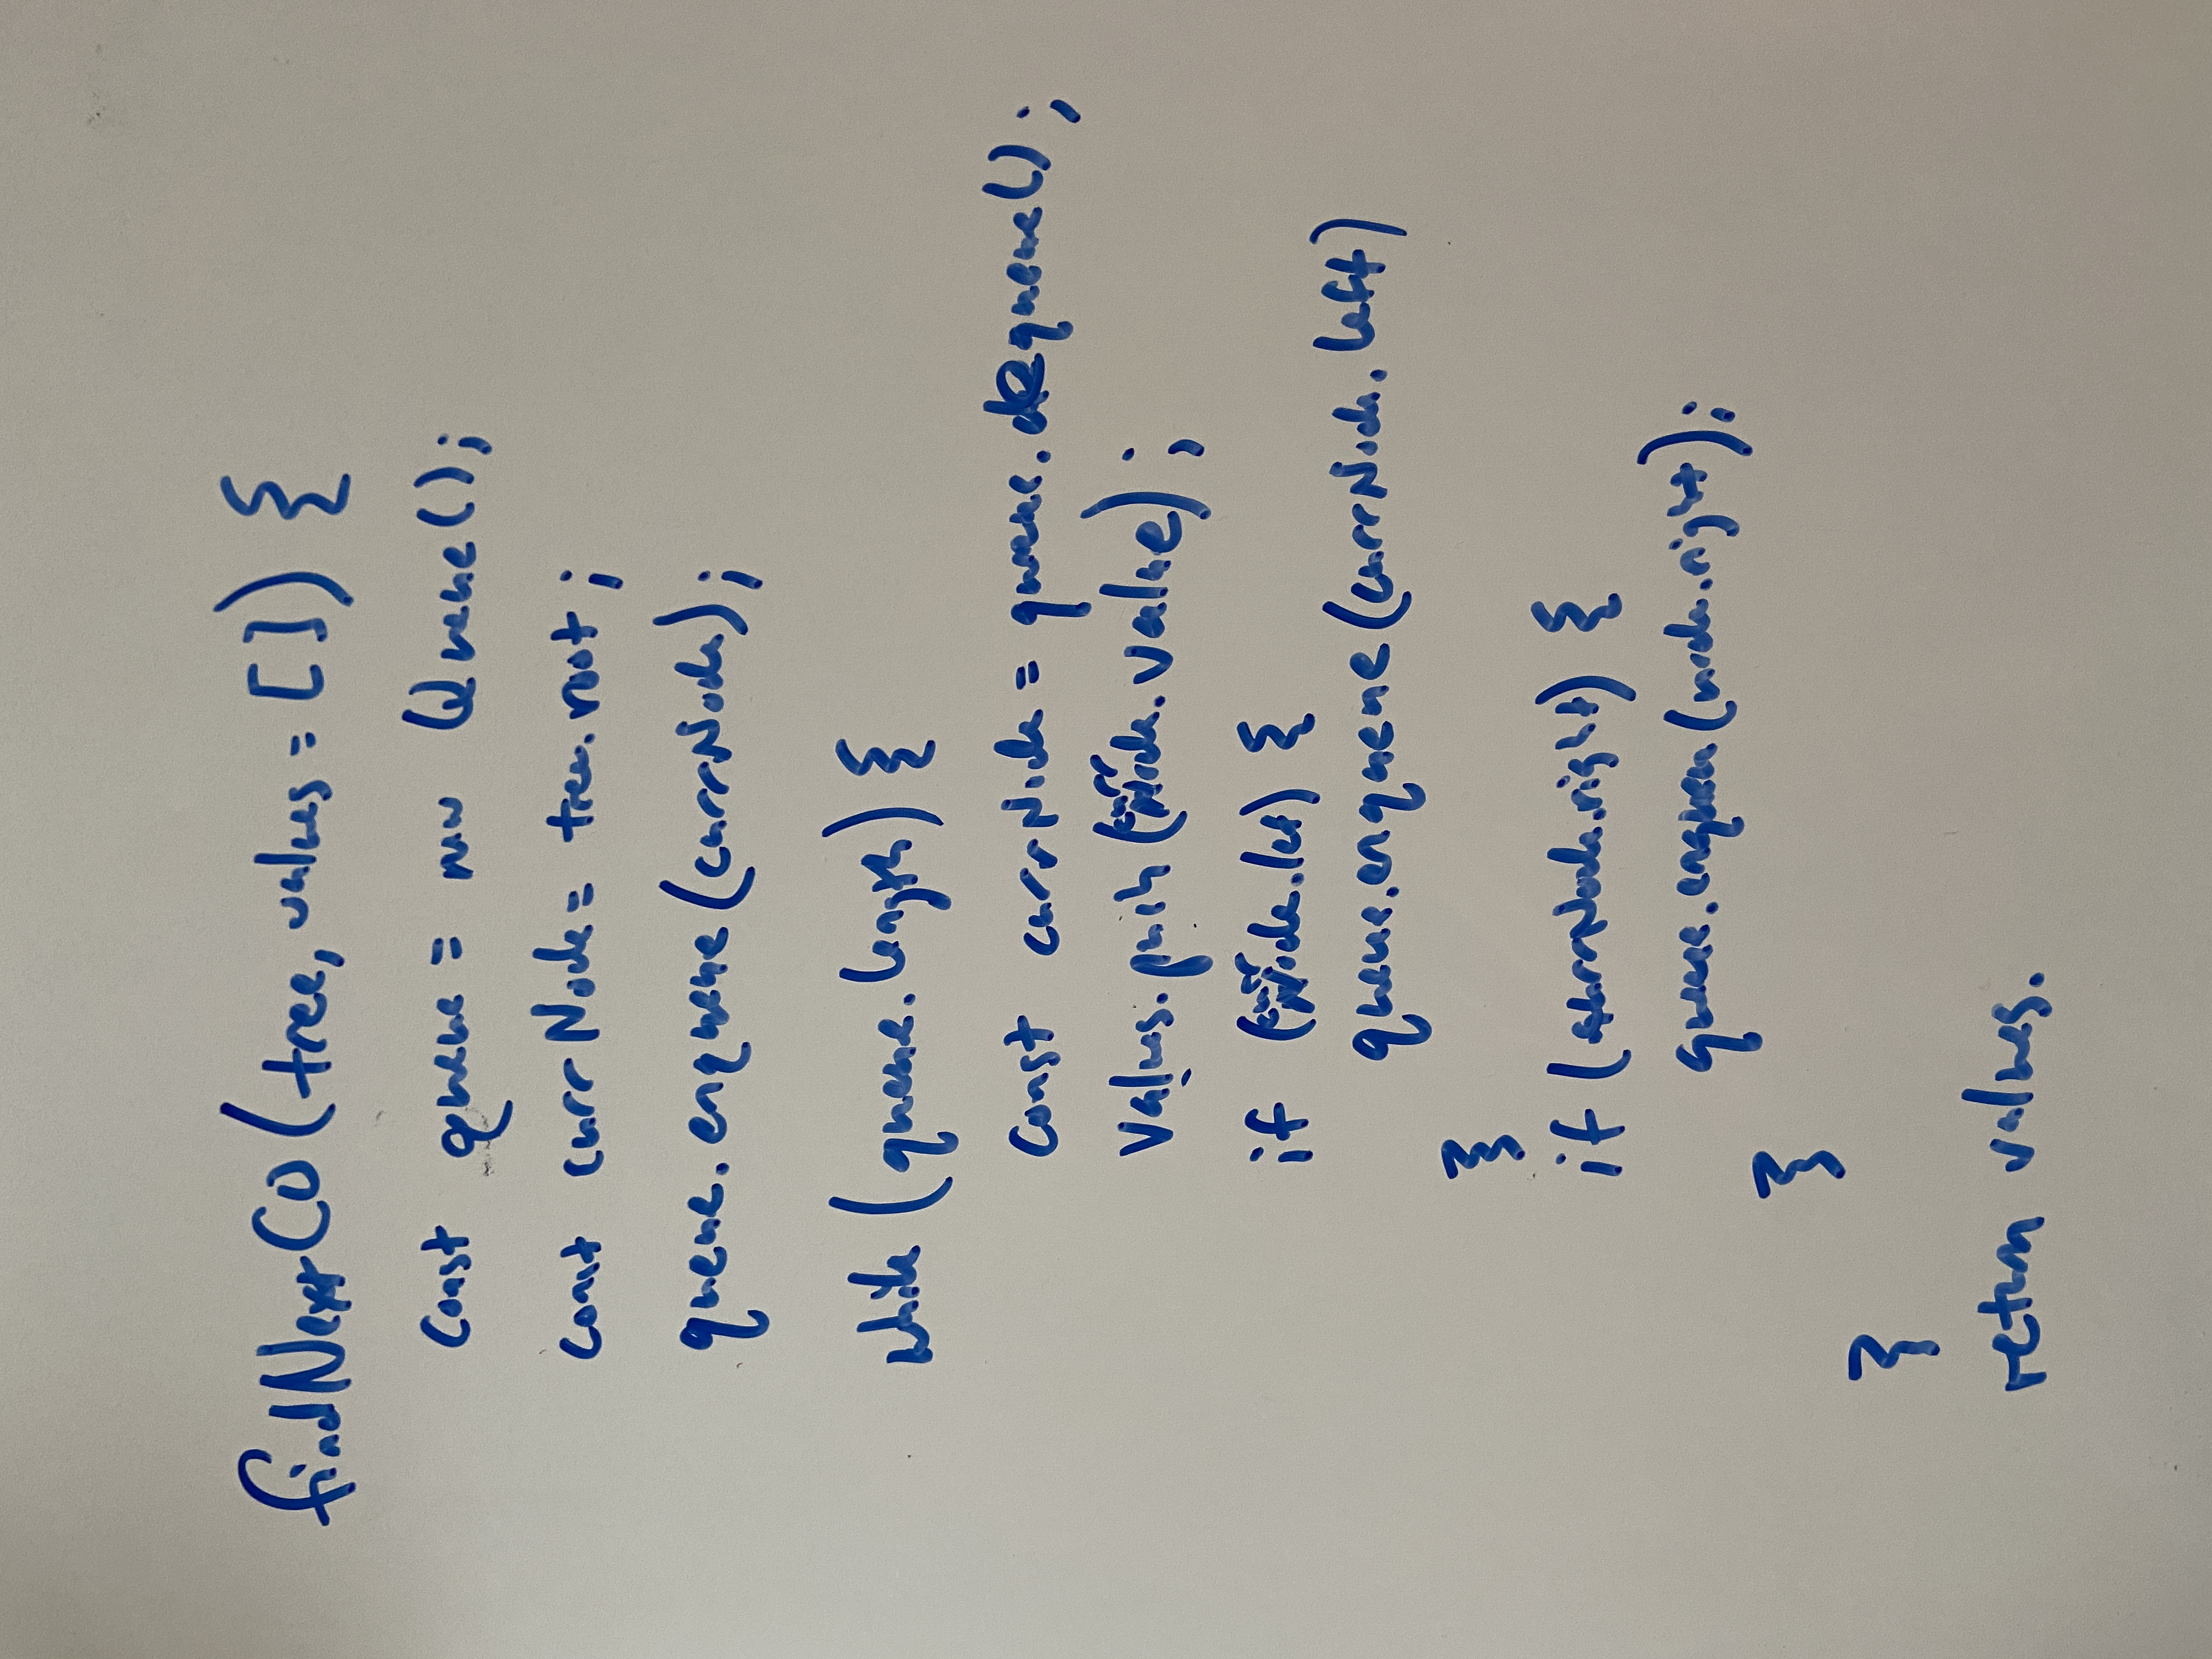 findNextCO(tree, values = []) {
const queue = new Queue();
const currNode = tree.root;
queue.enqueue(currNode);
while (queue.length) {
const currNode = queue.dequeue();
values.push(currNode.value);
if (currNode.let) {
queue.enqueue(currNode.left)
}
if (currNode.right) {
queue.enqueu(node.right);
}
}
return values.